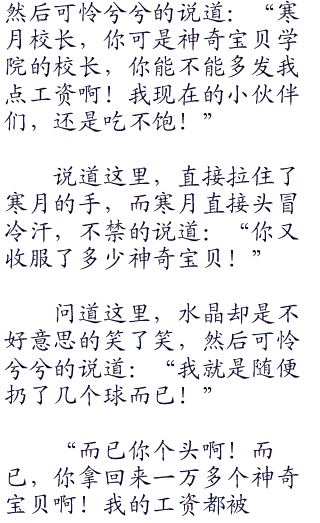 然后可怜兮兮的说道：“寒
月校长，你可是神奇宝贝学
院的校长，你能不能多发我
点工资啊！我现在的小伙伴
们，还是吃不饱！”
说道这里，直接拉住了
寒月的手，而寒月直接头冒
冷汗，不禁的说道：“你又
收服了多少神奇宝贝！”
问道这里，水晶却是不
好意思的笑了笑，然后可怜
兮兮的说道：“我就是随便
扔了几个球而已！”
“而已你个头啊！而
已，你拿回来一万多个神奇
宝贝啊！我的工资都被